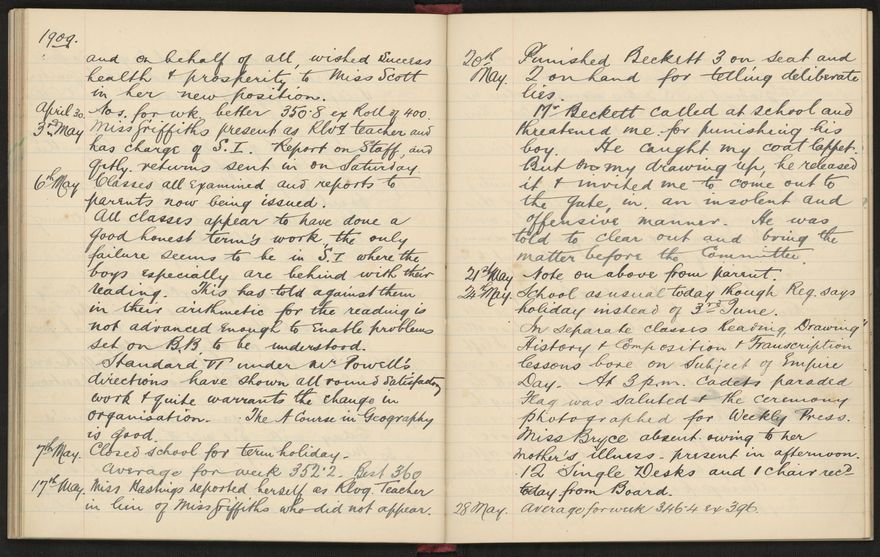 1909.
and on behalf of all, wished success
health & prosperity to Miss Scott
in her new position.
April 30. Nos. for wk better 350·8 ex Roll of 400.
3rd May Miss Griffiths present as Rlvg teacher and
has charge of S.I. Report on Staff, and
qrtly. returns sent in on Saturday
6th May Classes all examined and reports to
parents now being issued.
All classes appear to have done a
good honest term's work, the only
failure seems to be in S.I where the
boys especially are behind with their
reading. This has told against them
in their arithmetic for the reading is
not advanced enough to enable problems
set on B.B to be understood.
Standard VI under Mr Powell's
directions have shown all round satisfactory
work & quite warrants the change in
organisation. The A Course in Geography
is good.
7th May. Closed school for term holiday.
Average for week 352·2. Best 360
17th May. Miss Hastings reported herself as Rlvg. Teacher
in lieu of Miss Griffiths who did not appear.
20th May. Punished Beckett 3 on seat and
2 on hand for telling deliberate
lies.
Mr Beckett called at school and
threatened me for punishing his
boy. He caught my coat lappet.
But on my drawing up, he released
it & invited me to come out to
the gate, in an insolent and
offensive manner. He was
told to clear out and bring the
matter before the Committee.
21st May Note on above from parent.
24th May. School as usual today though Reg. says
holiday instead of 3rd June.
In separate classes Reading, Drawing
History & Composition & Transcription
lessons bore on subject of Empire
Day. At 3 p.m. cadets paraded
Flag was saluted & the ceremony
photographed for Weekly Press.
Miss Bryce absent owing to her
mother's illness - present in afternoon.
12 Single Desks and 1 chair recd
today from Board.
28 May. Average for week 346·4 ex 396.